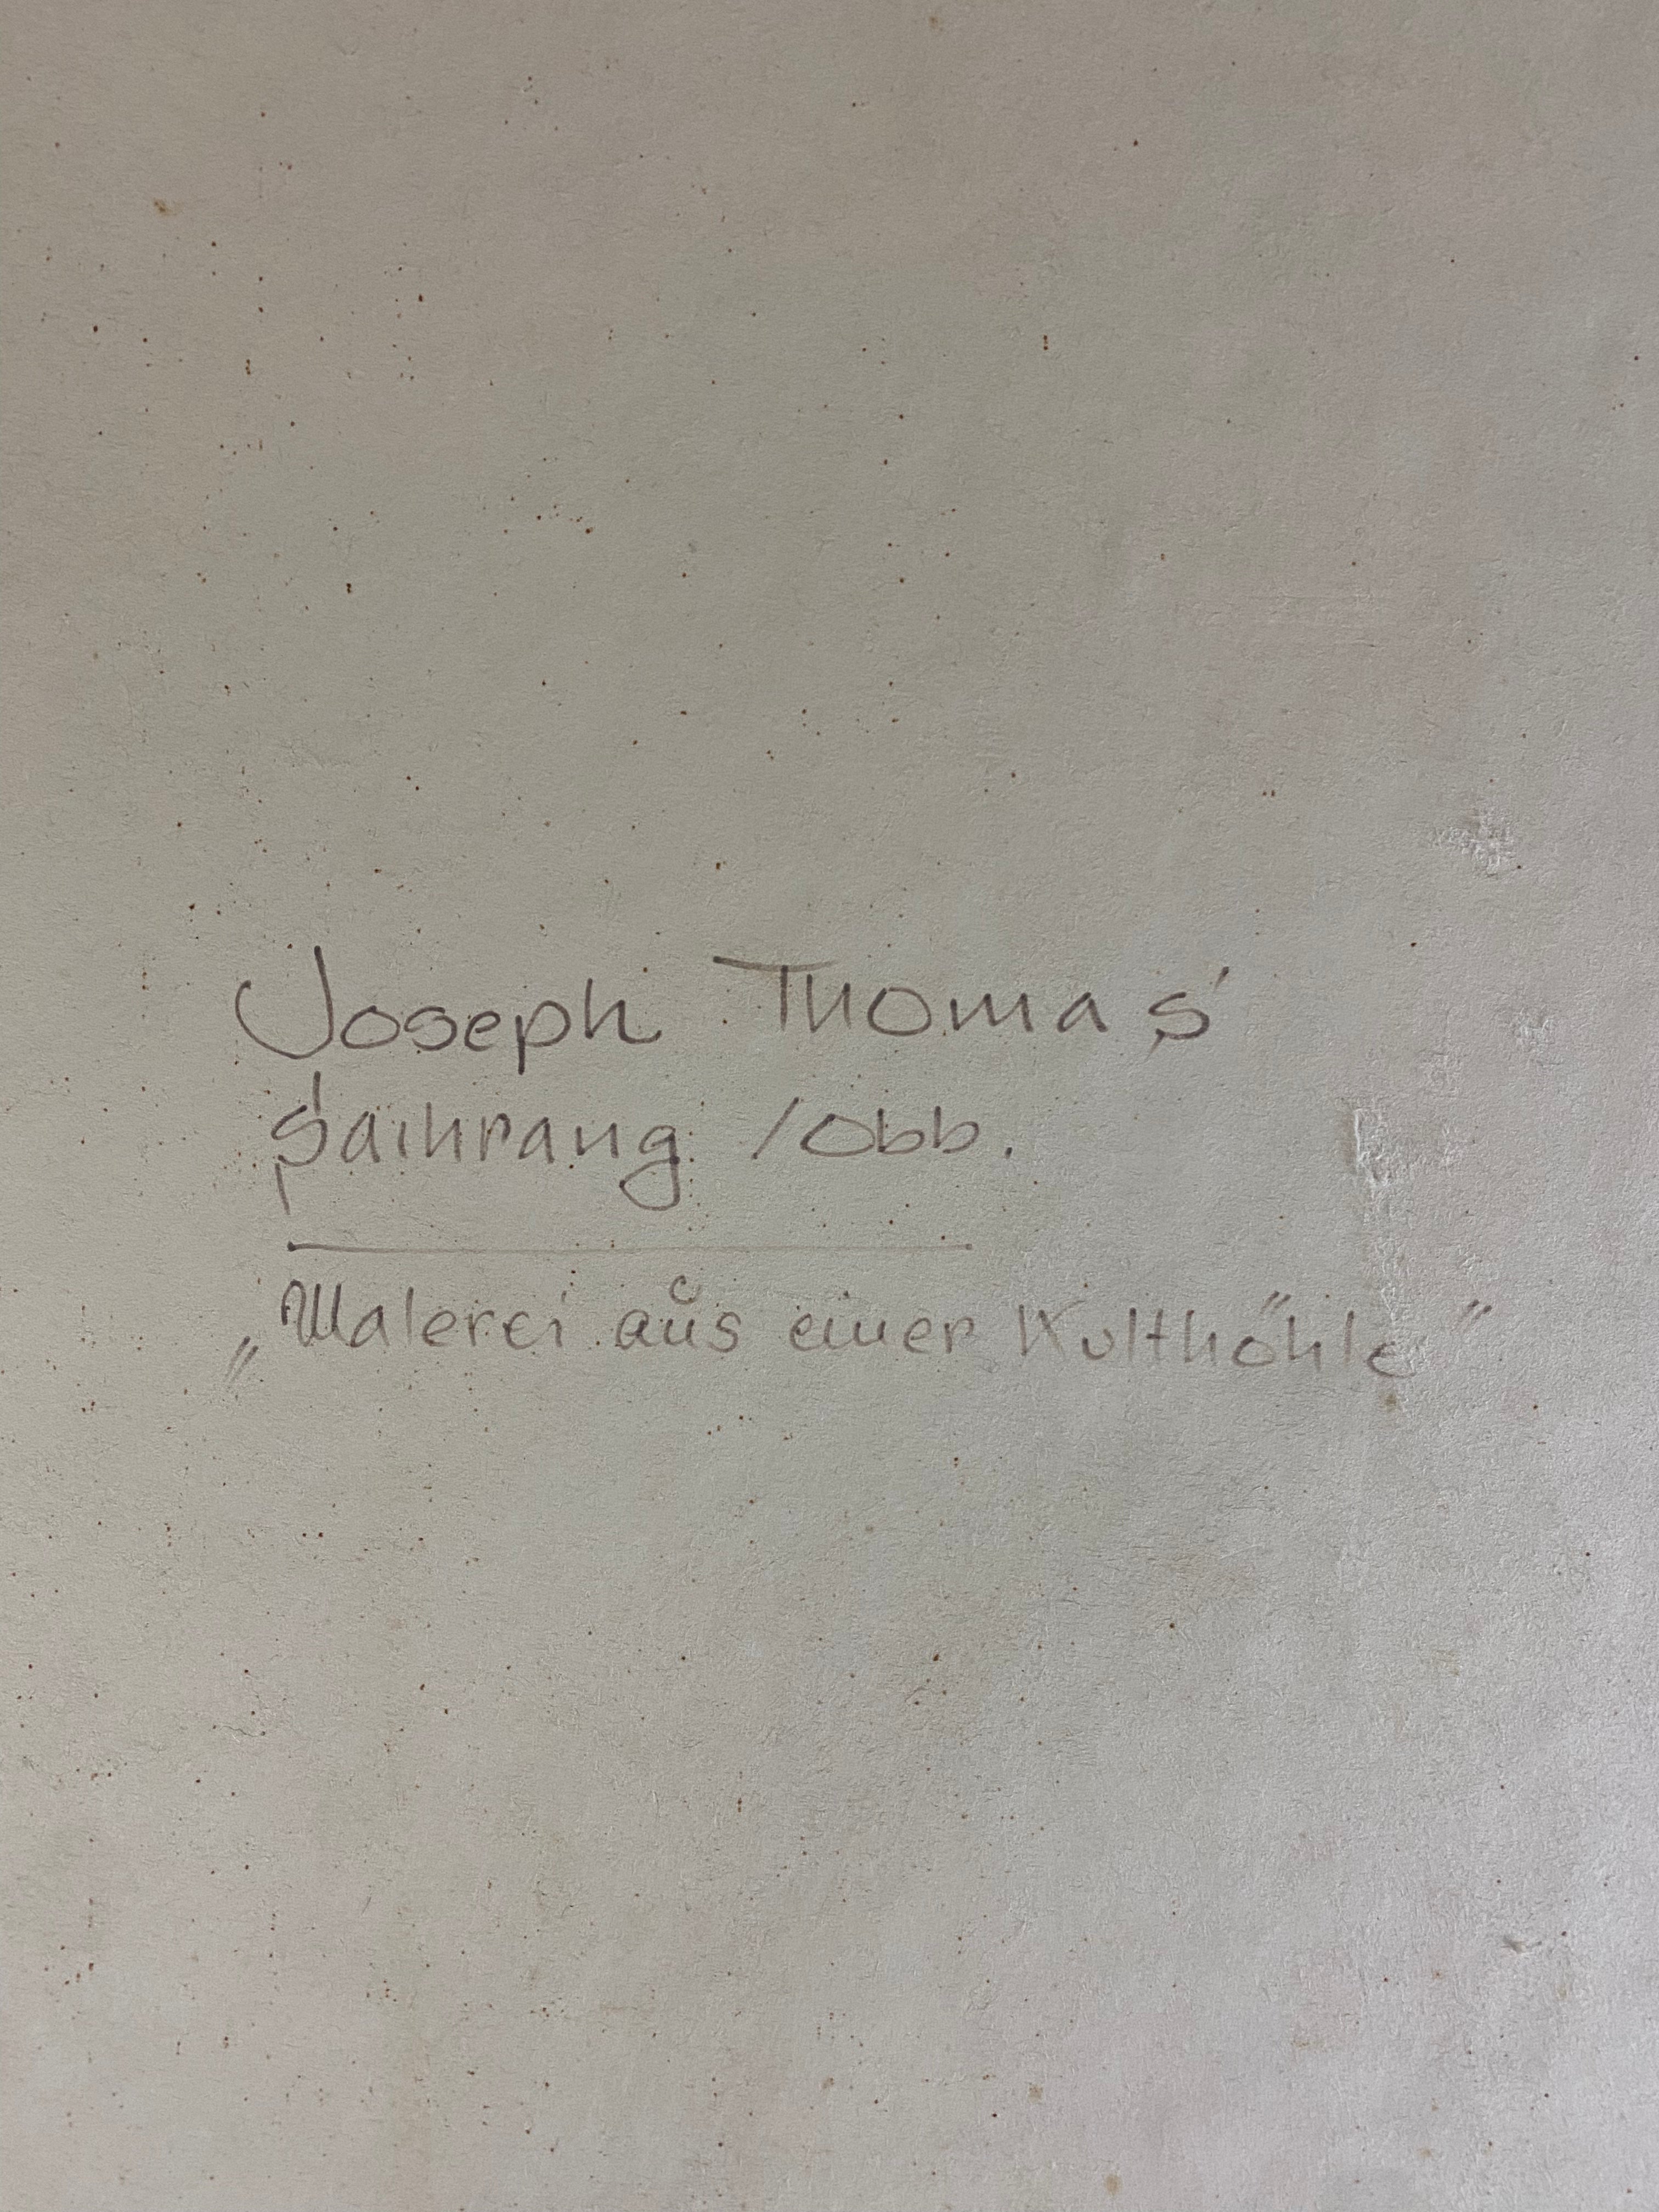 Joseph Thomas
Sachrang /Obb.
„Malerei aus einer Kulthöhle"